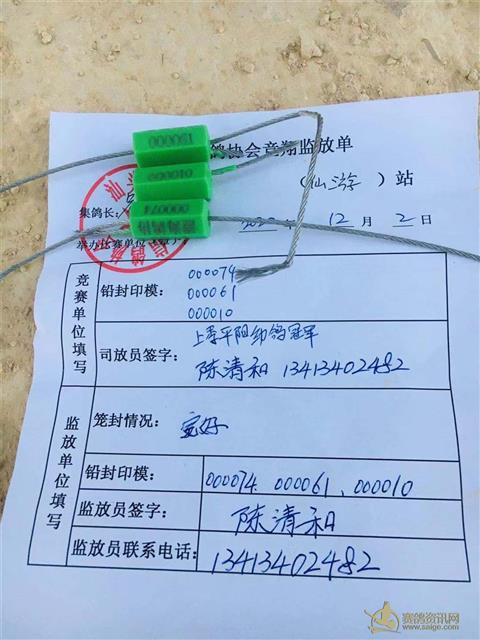 000061
000010
000074
鸽协会竞翔监放单
(仙游)站
集鸽长:
2022年 12月 2日
举办比赛单位
竞赛单位填写
铅封印模:
000074
000061
000010
司放员签字:
陈清和 13413402482
监放单位填写
笼封情况: 完好
铅封印模: 000074 000061、000010
监放员签字: 陈清和
监放员联系电话: 13413402482
赛鸽资讯网
www.saige.com